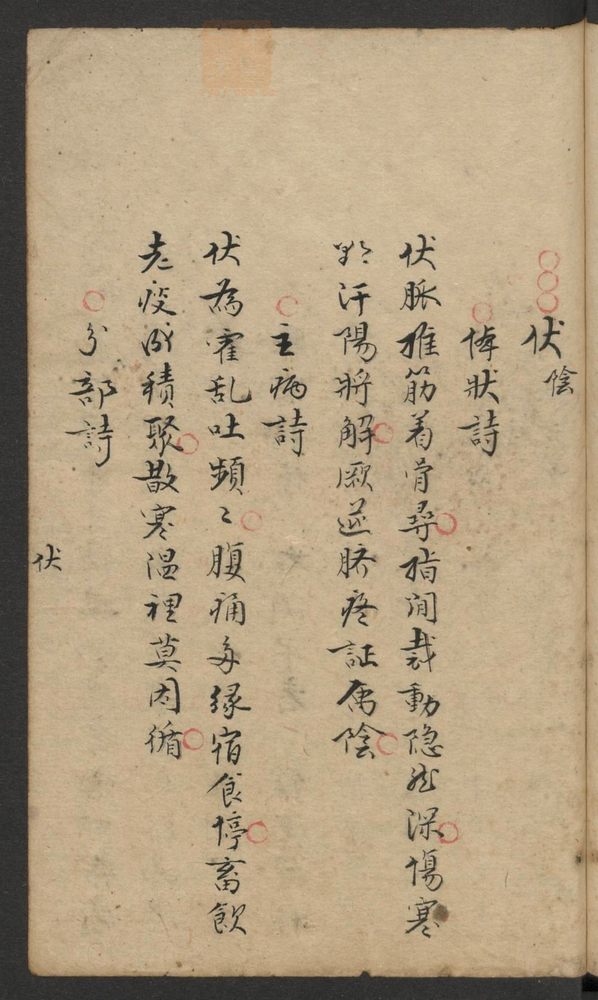 伏陰
体状詩
伏脈推筋着骨尋指間裁動隐然深傷寒
欲汗陽將解厥逆脐疼証属陰
主病詩
伏為霍乱吐頻〻腹痛多緣宿食停畜飲
老痰成積聚散寒温裡莫因循
分部詩
伏